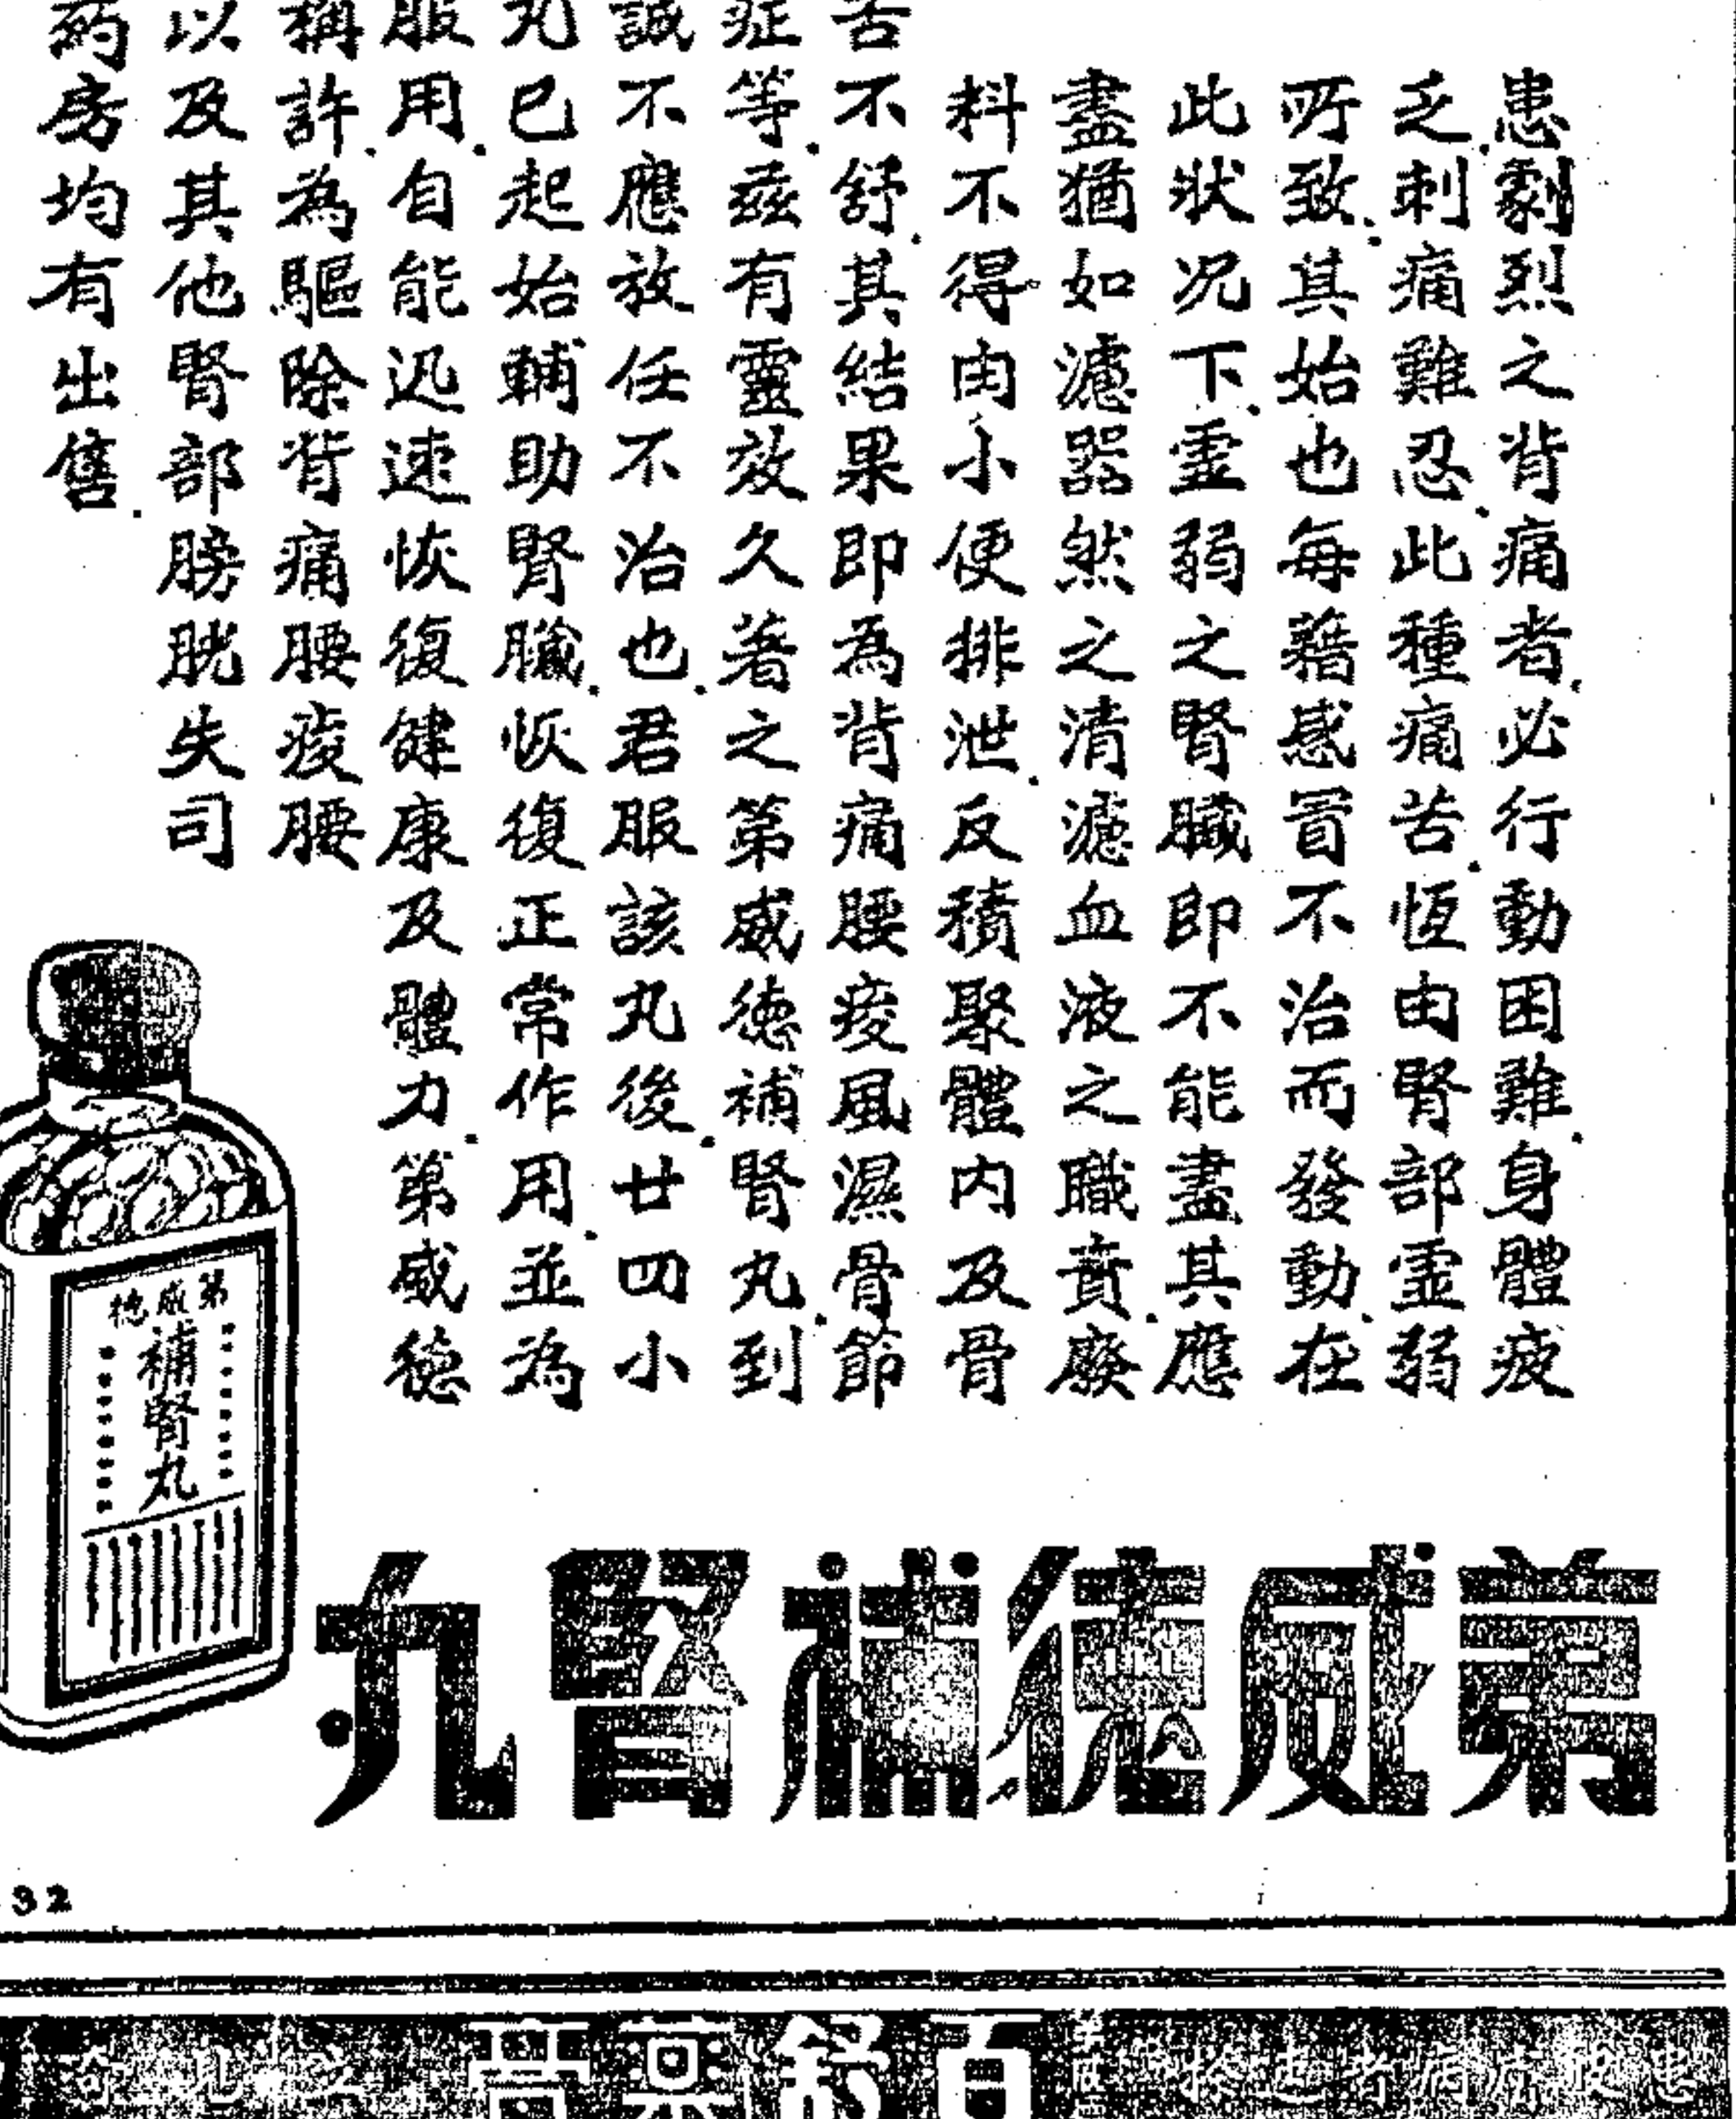 患劇烈之背痛者必行動困難.身體疲
乏.刺痛難忍.此種痛苦.恆由腎部虛弱
所致.其始也每藉感冒不治而發動.在
此狀况下.虛弱之腎臟即不能盡其應
盡猶如濾器然之清濾血液之職責.廢
料不得由小便排泄.反積聚體內及骨
不舒.其結果即為背痛腰痠風濕骨節
症等.茲有靈效久著之第威德補腎丸.到
誠不應放任不治也.君服該丸後.廿四小
丸已起始輔助腎臟.恢復正常作用.並為
服用.自能迅速恢復健康及體力.第威德
稱許.為驅除背痛腰痠腰
以及其他腎部膀胱失司
药房均有出售.
第威德
補腎丸
第威德補腎丸
32